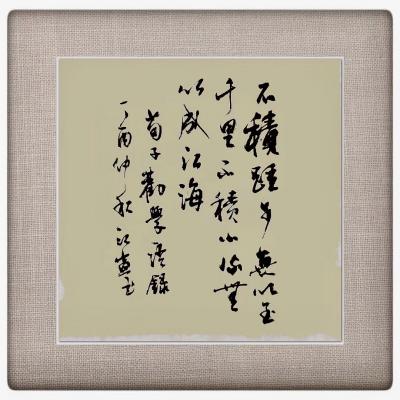 不積跬步無以至
千里不積小流無
以成江海
荀子勸學語錄
丁酉仲秋江